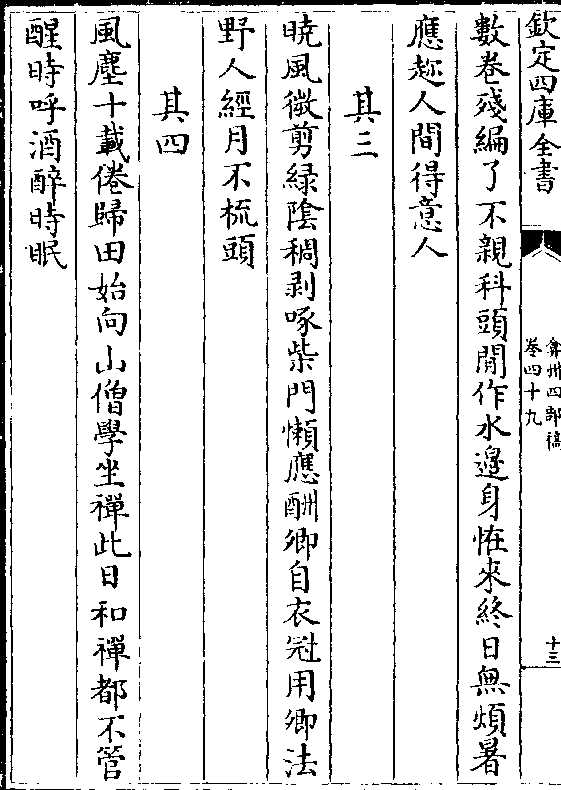 欽定四庫全書
弇州四部稿
卷四十九
十三
數卷殘編了不親科頭閒作水邊身怪來終日無煩暑
應趂人間得意人
其三
曉風微剪緑陰稠剥啄柴門懶應酬卿自衣冠用卿法
野人經月不梳頭
其四
風塵十載倦歸田始向山僧學坐禪此日和禪都不管
醒時呼酒醉時眠